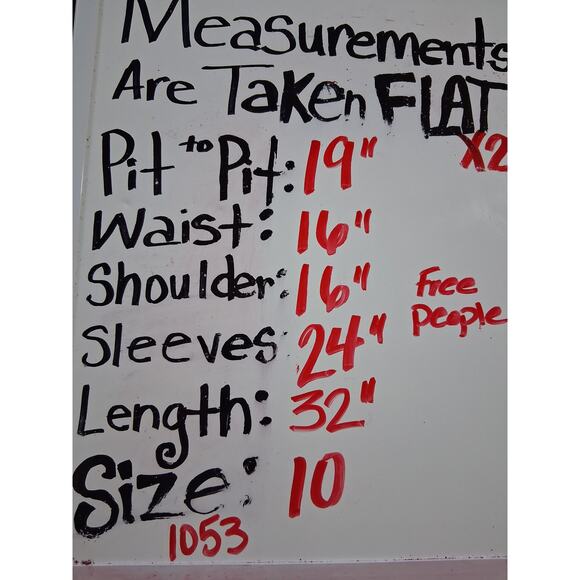 Measurements
Are Taken FLAT
X2
Pit to Pit: 19"
Waist: 16"
Shoulder: 16"
Free
People
Sleeves: 24"
Length: 32"
Size: 10
1053